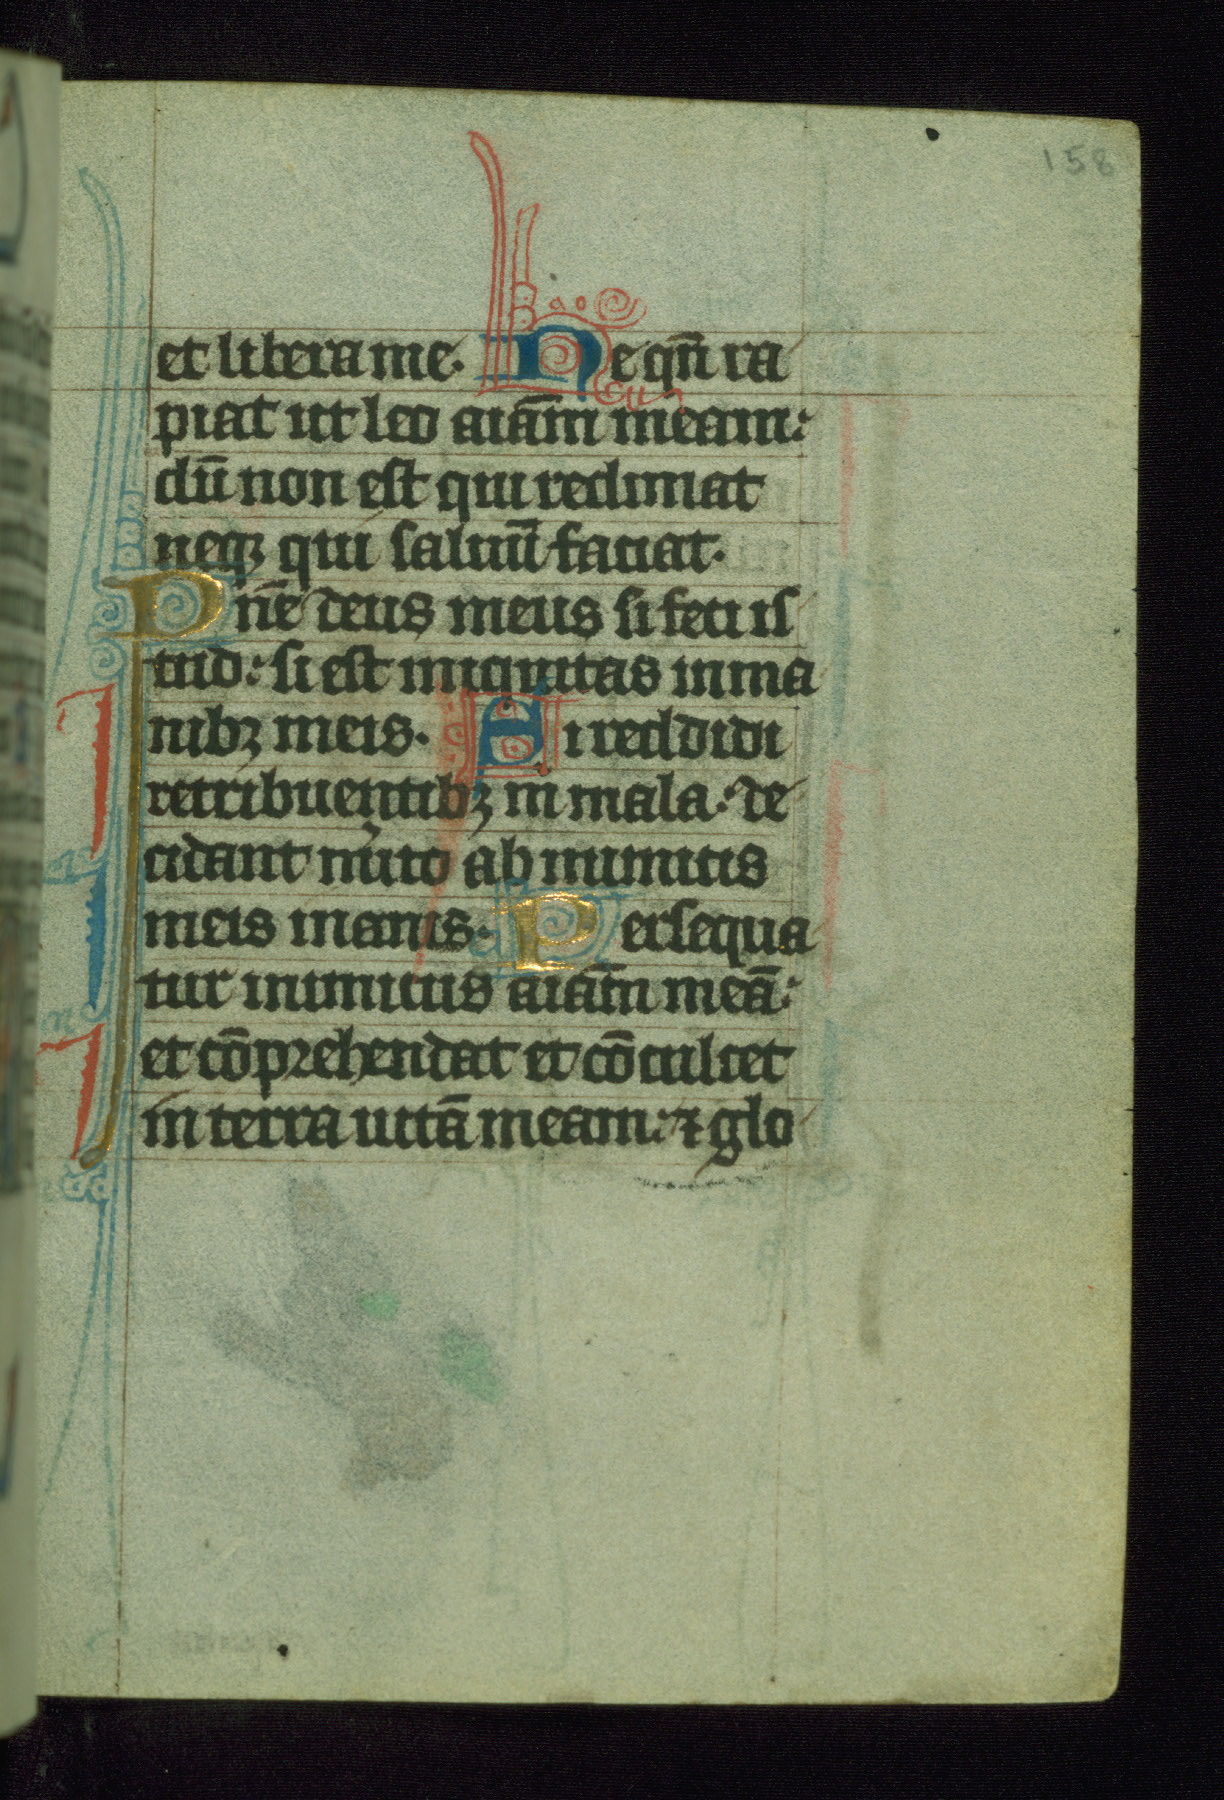 158
et libera me. Ne qñ ra
piat ut leo aiãm meam:
dũ non est qui redimat
neqꝫ qui saluũ faciat.
Dñe deus meus si feci is
tud: si est iniquitas in ma
nibꝫ meis. Si reddidi
retribuentibꝫ m mala: de
cidant mito ab inimicis
meis inanis. Persequa
tur inimicus aiãm meã:
et cõprehendat et cõculcet
in terra uitã meam: ⁊ glo